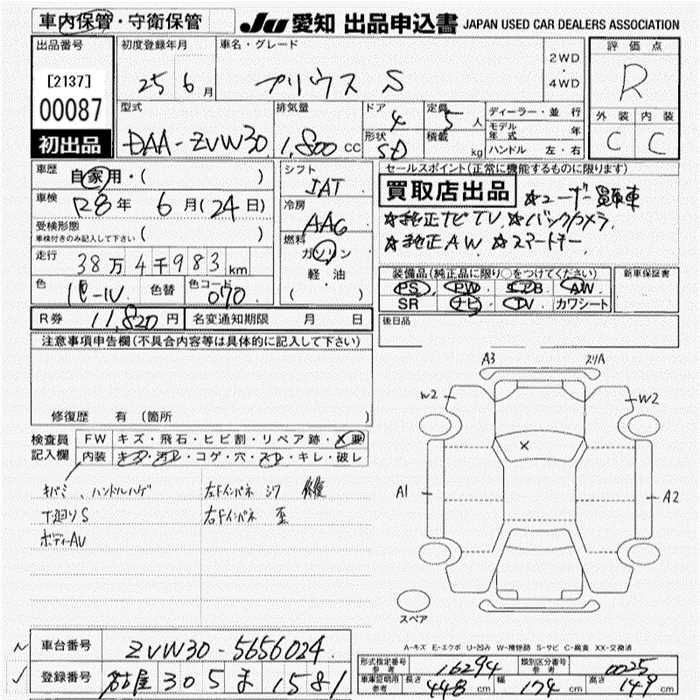 車内保管・守衛保管
JU 愛知 出品申込書 JAPAN USED CAR DEALERS ASSOCIATION
出品番号
[2137]
00087
初出品
初度登録年月
25 6月
車名・グレード
プリウス S
2WD・4WD
評価点
R
外装 内装
C C
型式
DAA-ZVW30
排気量
1,800 CC
ドア
4
形状
SD
定員
5人
積載
kg
ディーラー・並行
モデル年式 年
ハンドル 左・右
車歴
自家用・( )
車検
R8年 6月(24日)
受検形態
車検付きのみ記入して下さい ( )
走行
38万4千983km
色
パール
色替
色コード
070
シフト
IAT
冷房
AAC
燃料
ガソリン
軽油
( )
セールスポイント(正常に機能するものに限ります)
買取店出品 ☆ユーザー買取車
☆純正ナビTV ☆バックカメラ
☆純正AW ☆スマートキー
装備品(純正品に限り○をつけてください)
PS PW エアB AW
SR ナビ TV カワシート
新車保証書
後日品
R券 11,820円 名変通知期限 月 日
注意事項申告欄(不具合内容等は具体的に記入して下さい)
修復歴 有 (箇所 )
検査員記入欄
FW キズ・飛石・ヒビ割・リペア跡・X要
内装 キズ・汚レ・コゲ・穴・スレ・キレ・破レ
キバミ、ハンドルハゲ
下廻りS
ボディーAU
左Fインパネ シワ 修復
右Fインパネ 歪
A3
スリA
W2
W2
X
A1
A2
スペア
A-キズ E-エクボ U-凹み W-補修跡 S-サビ C-腐食 XX-交換済
車台番号 ZVW30-5656024
登録番号 名古屋 305 ま 1581
形式指定番号 参考 16294
類別区分番号 参考 0025
車庫証明用 参考 長さ 448cm 幅 174cm 高さ 149cm